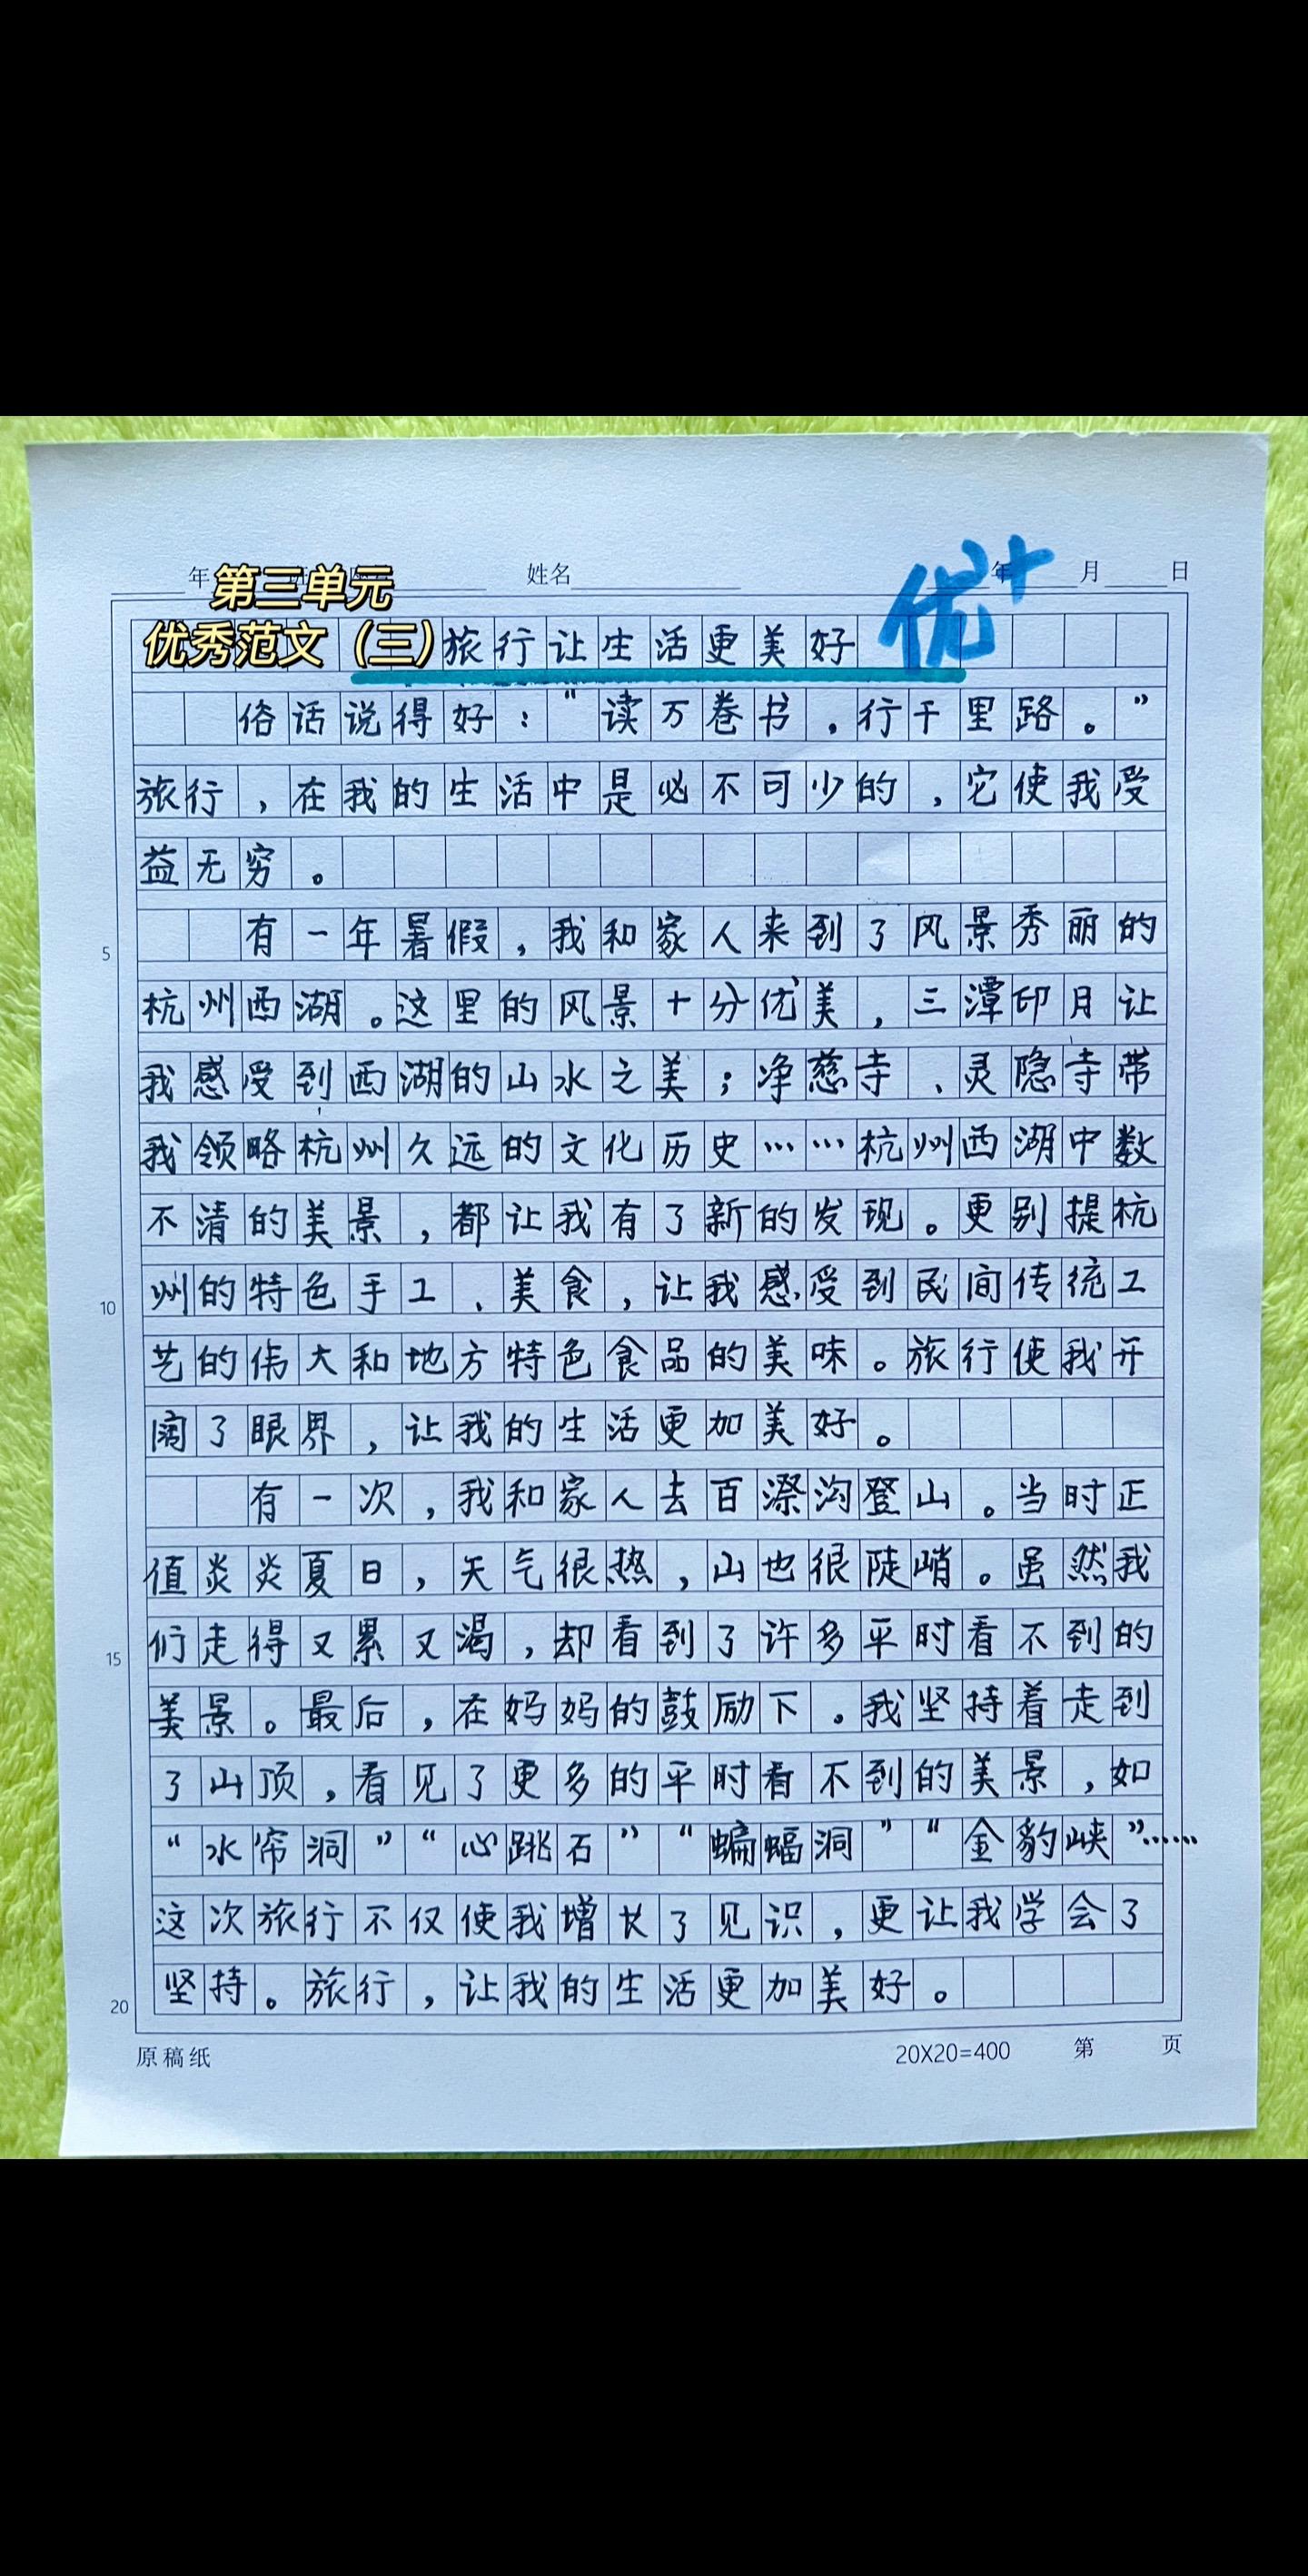 年 月 日
姓名
第三单元
优秀范文（三）
优+
旅行让生活更美好
俗话说得好：“读万卷书，行千里路。”
旅行，在我的生活中是必不可少的，它使我受
益无穷。
有一年暑假，我和家人来到了风景秀丽的
5
杭州西湖。这里的风景十分优美，三潭印月让
我感受到西湖的山水之美；净慈寺、灵隐寺带
我领略杭州久远的文化历史……杭州西湖中数
不清的美景，都让我有了新的发现。更别提杭
州的特色手工、美食，让我感受到民间传统工
10
艺的伟大和地方特色食品的美味。旅行使我开
阔了眼界，让我的生活更加美好。
有一次，我和家人去百漈沟登山。当时正
值炎炎夏日，天气很热，山也很陡峭。虽然我
们走得又累又渴，却看到了许多平时看不到的
15
美景。最后，在妈妈的鼓励下。我坚持着走到
了山顶，看见了更多的平时看不到的美景，如
“水帘洞”“心跳石”“蝙蝠洞”“金豹峡”……
这次旅行不仅使我增长了见识，更让我学会了
坚持。旅行，让我的生活更加美好。
20
原稿纸 20X20=400 第 页